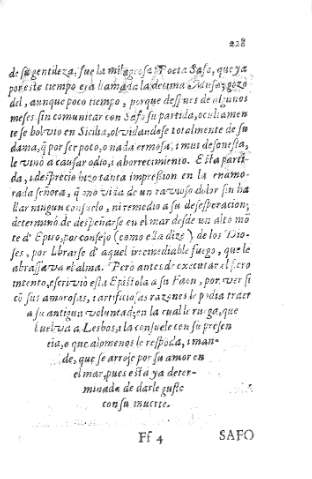 228
de su gentileza, fue la milagrosa Poeta Safo, que ya
por este tiempo era llamada la decima Musa, gozo
del, aunque poco tiempo, porque despues de algunos
meses sin comunicar con Safo su partida, ocultamen
te se bolvio en Sicilia, olvidandose totalmente de su
dama, q̃ por ser poto, o nada ermosa, i mui desonesta,
le vino a causar odio, i aborrecimiento. Esta parti-
da, i desprecio hizo tanta impresion en la enamo-
rada señora, q̃ movida de un ravioso dolor sin ha
llar ningun consuelo, ni remedio a su desesperacion;
determinó de despeñarse en el mar desde un alto mõ
te d' Epiro, por consejo (como ella dize) de los Dio-
ses, por librarse d' aquel irremediable fuego, que le
abrassava el alma. Pero antes de executar el fiero
intento, escrivió esta Epistola a su Faon, por ver si
cõ sus amorosas, i artificiosas razones le podia traer
a su antigua voluntad; en la cual le ruega, que
buelva a Lesbos, i a consuele con su presen
cia, o que alomenos le responda, i man-
de, que se arroje por su amor en
el mar, pues està ya deter-
minada de darle gusto
con su muerte.
Ff 4
SAFO